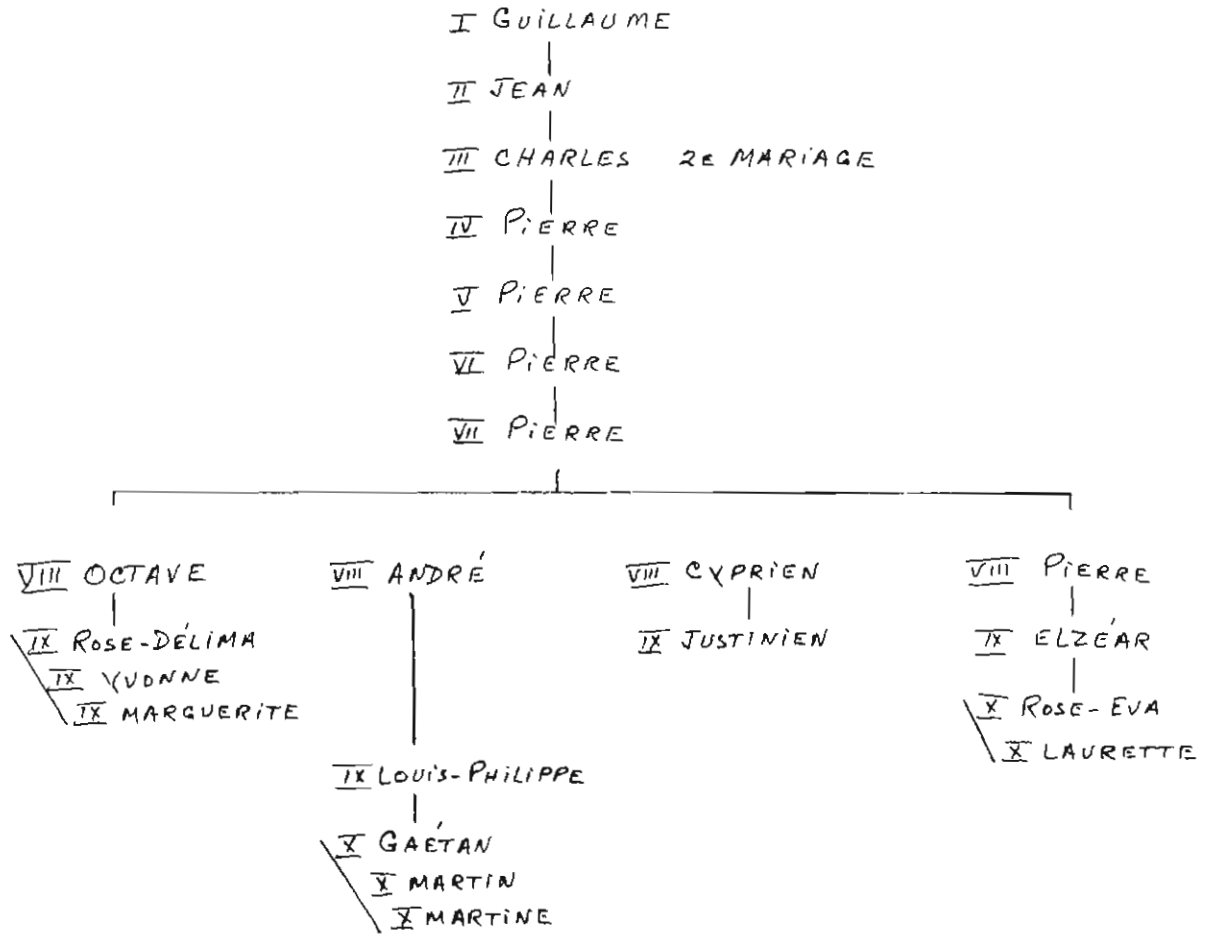 I GUiLLAUME
II JEAN
III CHARLES 2E MARiAGE
IV PiERRE
V PiERRE
VI PiERRE
VII PiERRE
VIII OCTAVE
IX ROSE-DÉLIMA
IX YVONNE
IX MARGUERiTE
VIII ANDRÉ
IX LOUiS-PHiLiPPE
X GAÉTAN
X MARTIN
X MARTiNE
VIII CYPRiEN
IX JUSTINiEN
VIII PiERRE
IX ELZÉAR
X ROSE-EVA
X LAURETTE